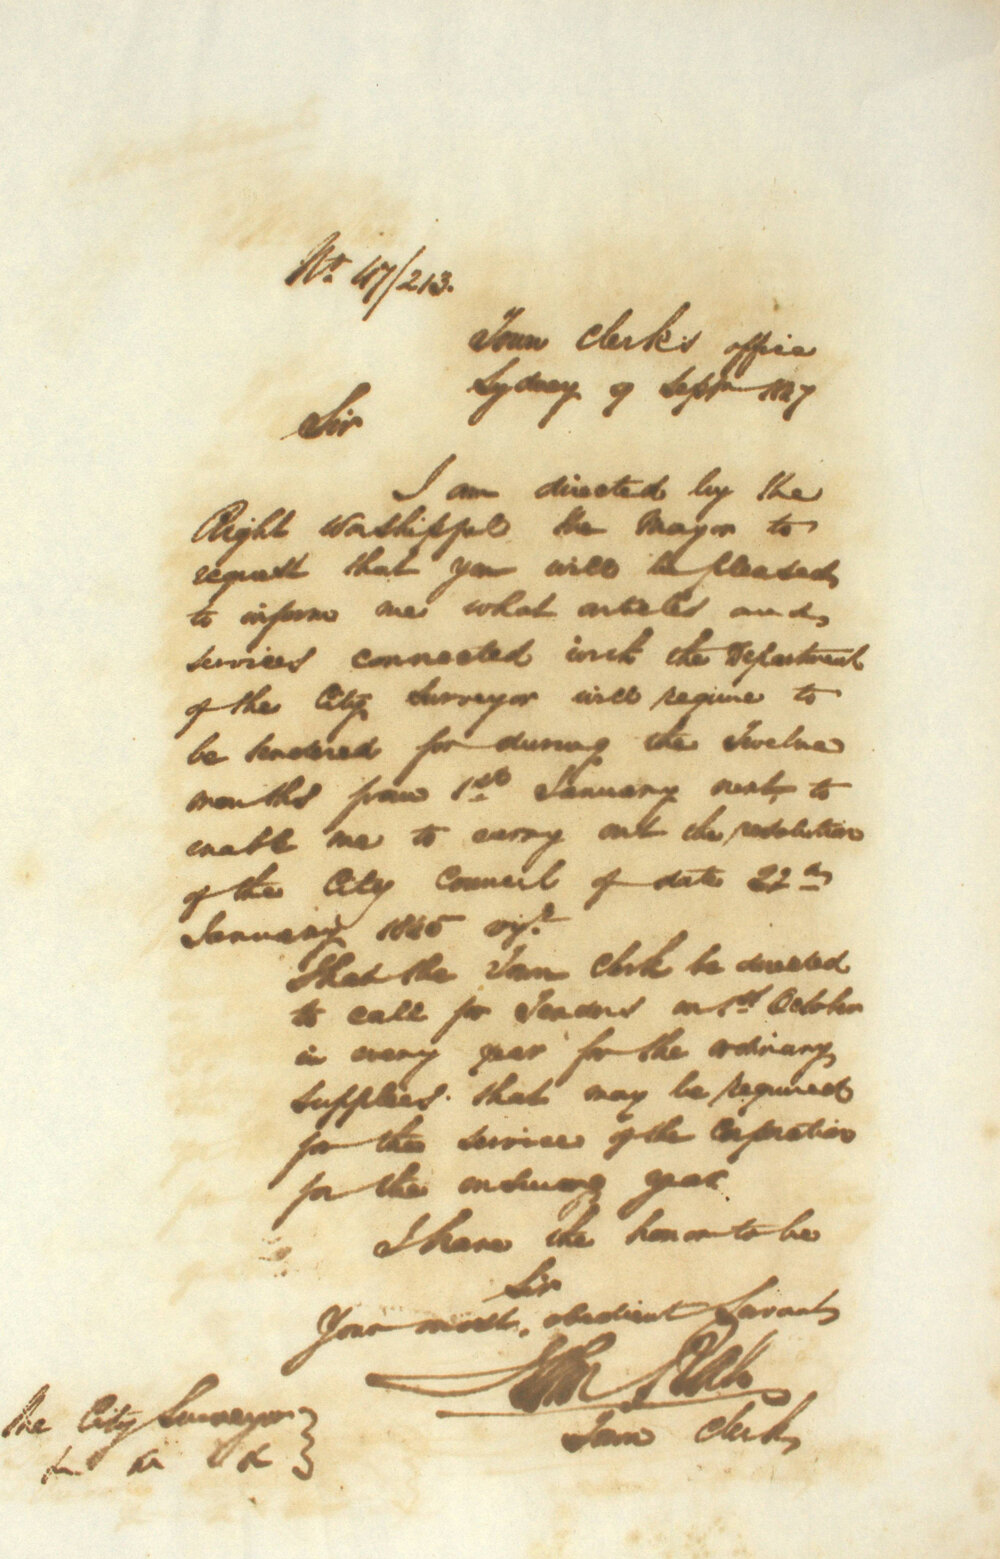 No. 47/213.
Town Clerk's office
Sydney 9 Septr 1847
Sir
I am directed by the
Right Worshipful the Mayor to
request that you will be pleased
to inform me what articles and
services connected with the Department
of the City Surveyor will require to
be tendered for during the Twelve
months from 1st January next, to
enable me to carry out the resolution
of the City Council of date 22nd
January 1845 vizt
That the Town Clerk be directed
to call for Tenders on 1st October
in every year for the ordinary
supplies that may be required
for the service of the Corporation
for the ensuing year
I have the honor to be
Sir
Your most obedient Servant
John
Town Clerk
The City Surveyor